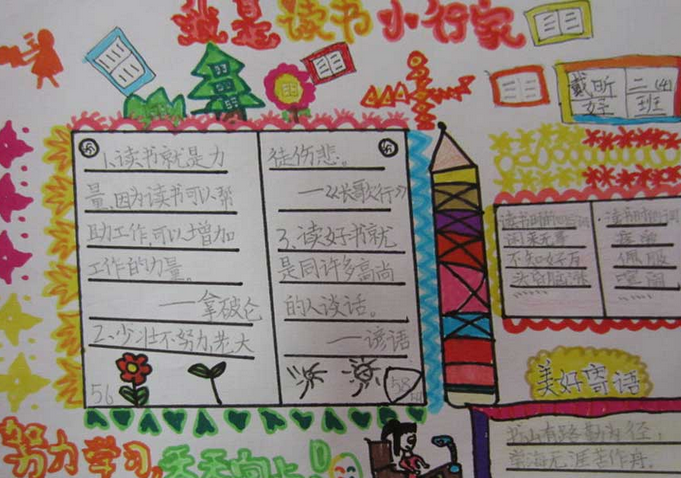 我是读书小行家
戴昕
妤
二(4)
班
1.读书就是力
量,因为读书可以帮
助工作,可以增加
工作的力量。
——拿破仑
2、少壮不努力,老大
56
徒伤悲。
——《长歌行》
3、读好书就
是同许多高尚
的人谈话。
——谚语
58
闲来无事
头昏脑涨
佩服
美好寄语
书山有路勤为径,
学海无涯苦作舟。
努力学习,天天向上!